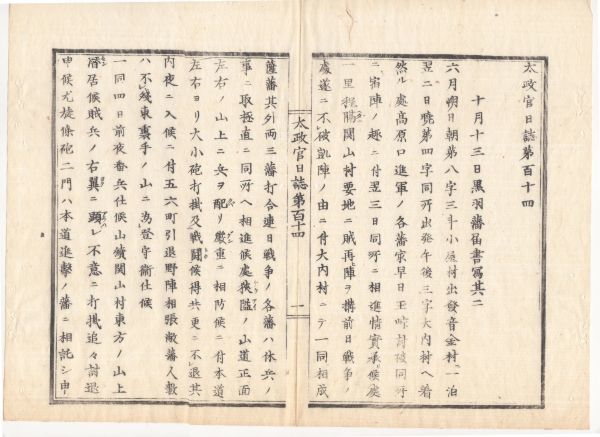 太政官日誌第百十四
十月十三日黒羽藩届書寫其二
六月朔日朝第八字三斗小屋村出發音金村ニ一泊
翌二日曉第四字同所出発午後三字大内村ヘ着
然ル處高原口進軍ノ各藩家早日王峠討破同所
ニ宿陣ノ趣ニ付翌三日同所ニ相進情實承候處
一里程隔関山村要地ニ賊再陣ヲ構前日戰争ノ
處遂ニ不破凱陣ノ由ニ付大内村ニテ一同相成
太政官日誌第百十四
一
薩藩其外両三藩打合連日戰争ノ各藩ハ休兵ノ
事ニ取極直ニ同所ヘ相進候處狹隘ノ山道正面
左右ノ山上ニ兵ヲ配リ嚴重ニ相防候ニ付本道
左右ヨリ大小砲打掛及戰闘候得共更ニ不退其
内夜ニ入候ニ付五六町引退野陣相張敵藩人數
ハ不殘東裏手ノ山ニ為登守衞仕候
一同四日前夜番兵仕候山續関山村東方ノ山上
屯居候賊兵ノ右翼ニ顕レ不意ニ打掛追々討退
申候尤旋條砲二門ハ本道進撃ノ藩ニ相託シ申